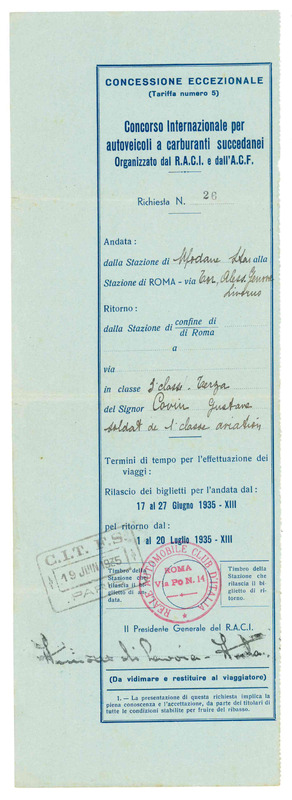 CONCESSIONE ECCEZIONALE
(Tariffa numero 5)
Concorso Internazionale per
autoveicoli a carburanti succedanei
Organizzato dal R.A.C.I. e dall'A.C.F.
Richiesta N. 26
Andata:
dalla Stazione di Modane alla
Stazione di ROMA - via Tor, Aless, Genova
Livorno
Ritorno:
dalla Stazione di confine di
di Roma
a
via
in classe 3e classe - Terza
del Signor Covin Gustave
soldat de 1e classe aviation
Termini di tempo per l'effettuazione dei
viaggi:
Rilascio dei biglietti per l'andata dal:
17 al 27 Giugno 1935 - XIII
pel ritorno dal:
1 al 20 Luglio 1935 - XIII
C.I.T. F.S.
19 JUIN 1935
PARIS
Timbro della
Stazione che
rilascia il bi-
glietto di an-
data.
REALE AUTOMOBILE CLUB D'ITALIA
ROMA
Via Po N. 14
Timbro della
Stazione che
rilascia il bi-
glietto di ri-
torno.
Il Presidente Generale del R.A.C.I.
di
(Da vidimare e restituire al viaggiatore)
1. — La presentazione di questa richiesta implica la
piena conoscenza e l'accettazione, da parte dei titolari di
tutte le condizioni stabilite per fruire del ribasso.